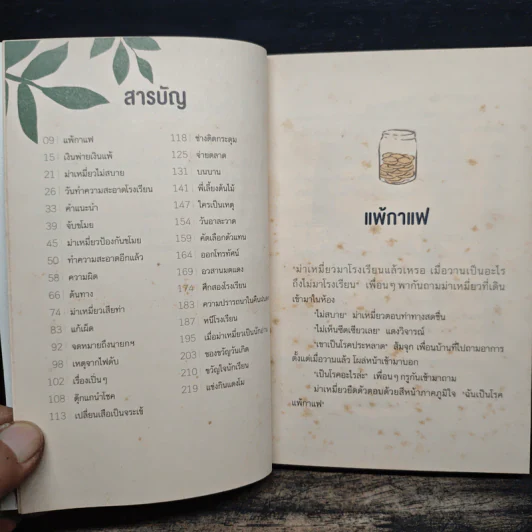 สารบัญ
09 แพ้กาแฟ
15 เงินพ่ายเงินแพ้
21 ม่าเหมี่ยวไม่สบาย
26 วันทำความสะอาดโรงเรียน
33 คำแนะนำ
39 จับขโมย
45 ม่าเหมี่ยวป้องกันขโมย
50 ทำความสะอาดอีกแล้ว
58 ความผิด
66 ต้นทาง
74 ม่าเหมี่ยวเสียท่า
83 แก้เผ็ด
92 จดหมายถึงนายกฯ
98 เหตุจากไฟดับ
102 เรื่องเป็นๆ
108 ตุ๊กแกนำโชค
113 เปลี่ยนเสือเป็นจระเข้
118 ช่างติดกระดุม
125 จ่ายตลาด
131 บนบาน
141 พี่เลี้ยงต้นไม้
147 ใครเป็นเหตุ
154 วันอาละวาด
159 คัดเลือกตัวแทน
164 ออกโทรทัศน์
169 อวสานมดแดง
174 ศึกสองโรงเรียน
183 ความปรารถนาใน
187 หนีโรงเรียน
195 เมื่อม่าเหมี่ยวเป็น
203 ของขวัญวันเกิด
210 ขวัญใจนักเรียน
219 แข่งกินแตงโม
แพ้กาแฟ
"ม่าเหมี่ยวมาโรงเรียนแล้วเหรอ เมื่อวานเป็นอะไร
ถึงไม่มาโรงเรียน" เพื่อนๆ พากันถามม่าเหมี่ยวที่เดิน
เข้ามาในห้อง
"ไม่สบาย" ม่าเหมี่ยวตอบท่าทางสดชื่น
"ไม่เห็นซีดเซียวเลย" แดงวิจารณ์
"เขาเป็นโรคประหลาด" ส้มจุก เพื่อนบ้านที่ไปถามอาการ
ตั้งแต่เมื่อวานแล้ว โผล่หน้าเข้ามาบอก
"เป็นโรคอะไรล่ะ" เพื่อนๆ กรูกันเข้ามาถาม
ม่าเหมี่ยวยืดตัวตอบด้วยสีหน้าภาคภูมิใจ "ฉันเป็นโรค
แพ้กาแฟ"